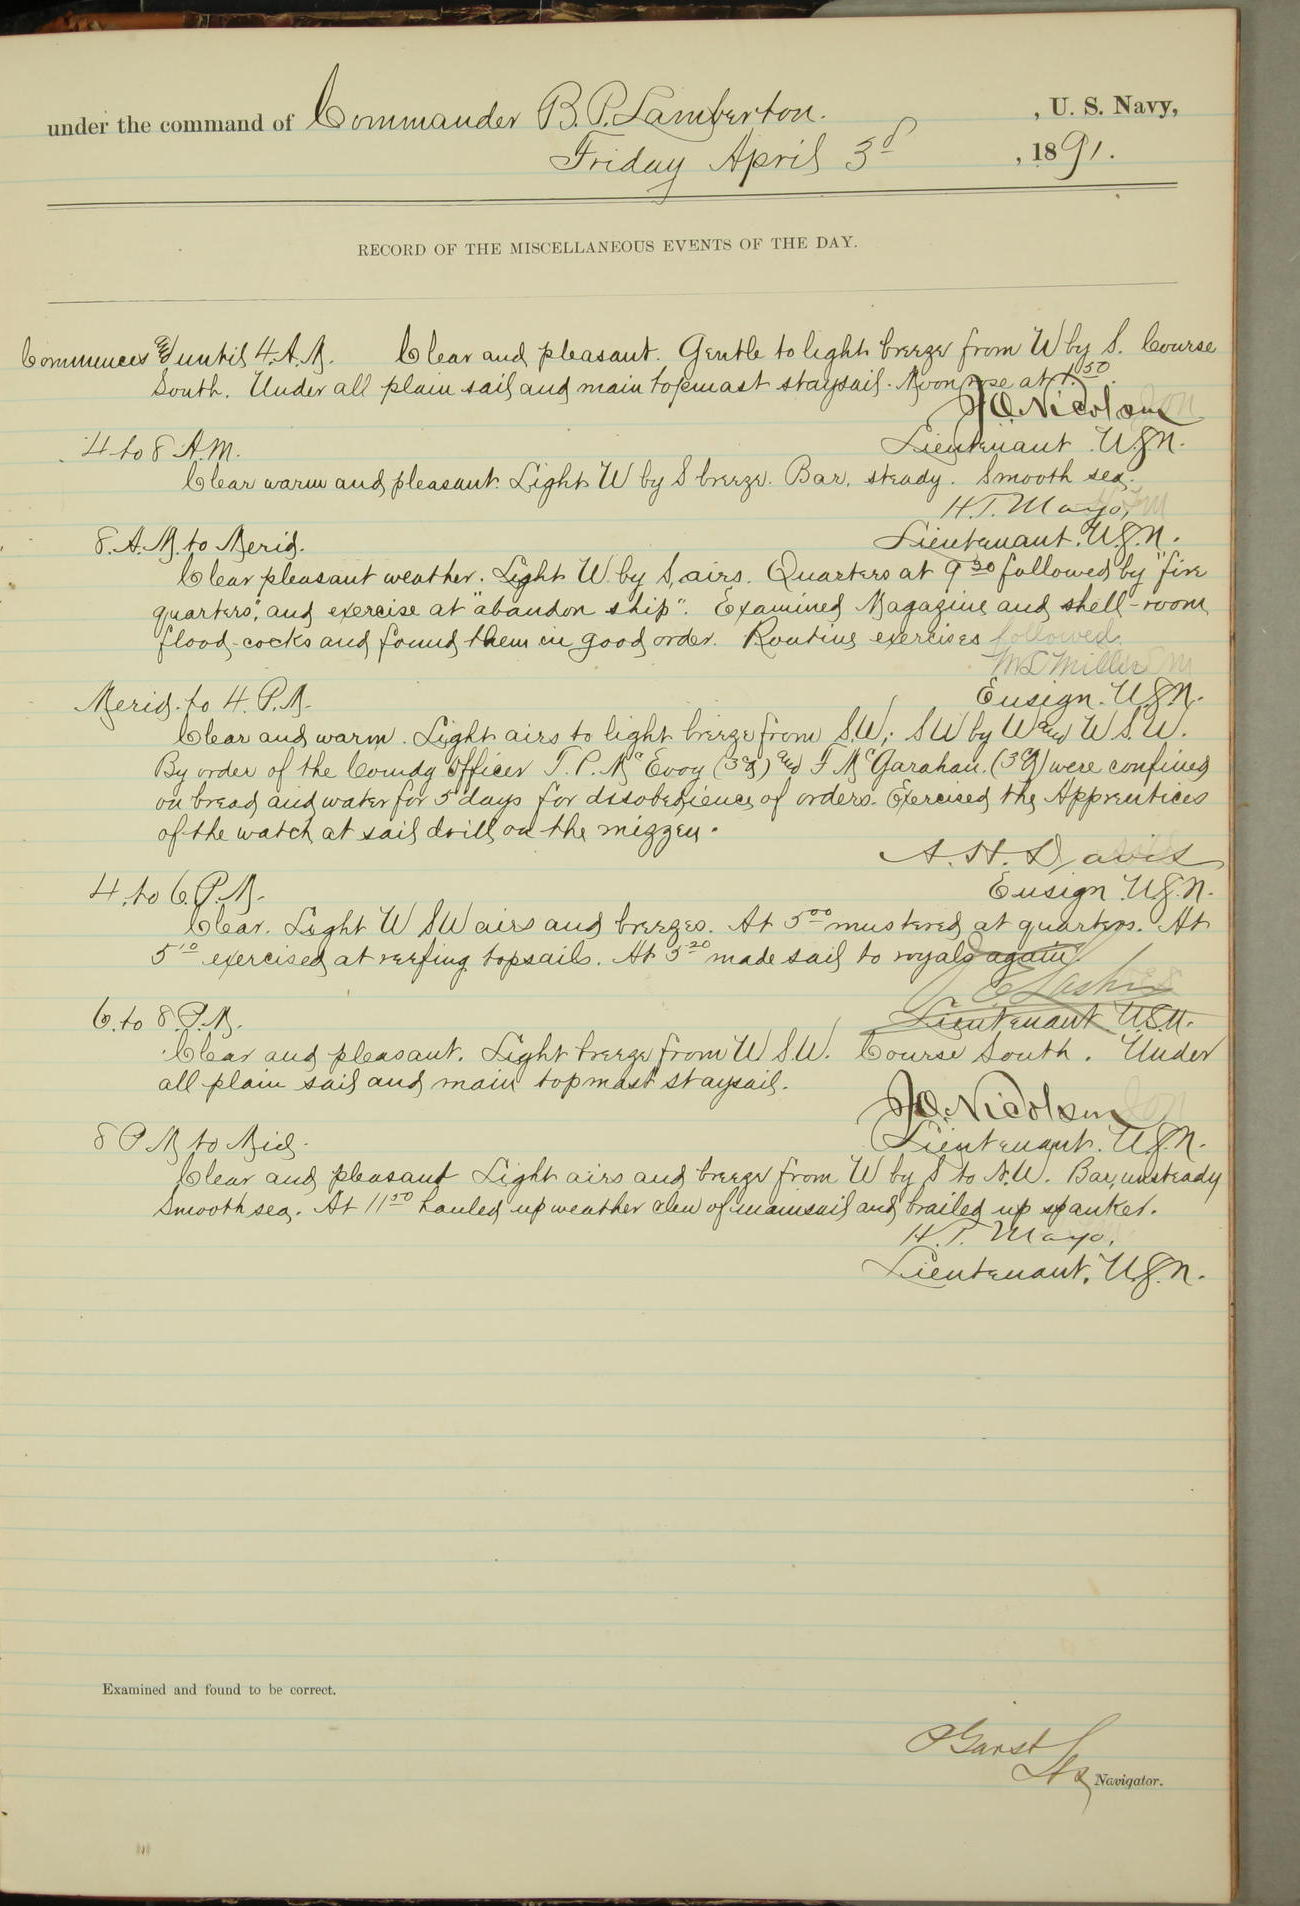 under the command of Commander B. P. Lamberton. , U. S. Navy,
Friday April 3d , 1891.
RECORD OF THE MISCELLANEOUS EVENTS OF THE DAY.
Commences and until 4. A. M. Clear and pleasant. Gentle to light breeze from W by S. Course
South. Under all plain sail and main topmast staysail. Moon rose at 1.50.
J. O. Nicolson
4 to 8 A.M. Lieutenant. U.S.N.
Clear warm and pleasant. Light W by S breeze. Bar. steady. Smooth sea.
H. T. Mayo,
8. A. M. to Merid. Lieutenant. U.S.N.
Clear pleasant weather. Light W. by S. airs. Quarters at 9 30 followed by "fire
quarters", and exercise at "abandon ship". Examined Magazine and shell-room
flood-cocks and found them in good order. Routine exercises followed.
M L Miller
Merid. to 4. P. M. Ensign. U.S.N.
Clear and warm. Light airs to light breeze from S.W.; SW by W and W S W.
By order of the Comdg Officer T. P. McEvoy (3cA) and F McGarahan. (3cA) were confined
on bread and water for 5 days for disobedience of orders. Exercised the Apprentices
of the watch at sail drill on the mizzen.
A. H. Davis
4. to 6. P. M. Ensign U.S.N.
Clear. Light W SW airs and breezes. At 5 00 mustered at quarters. At
5 10 exercised at reefing topsails. At 5 20 made sail to royals again.
Lieutenant U.S.N.
6. to 8. P. M.
Clear and pleasant. Light breeze from W S W. Course South. Under
all plain sail and main topmast staysail.
J. O. Nicolson
8 P M to Mid. Lieutenant. U.S.N.
Clear and pleasant Light airs and breeze from W by S to N.W. Bar, unsteady
Smooth sea. At 11 50 hauled up weather clew of mainsail and brailed up spanker.
H. T. Mayo,
Lieutenant. U.S.N.
Examined and found to be correct.
P Garst
Navigator.